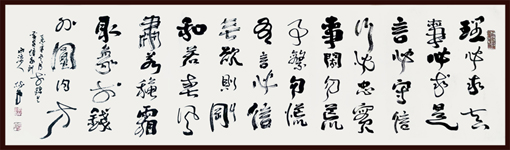 理必求真
事必求是
言必守信
行必忠實
事閑勿荒
事繁勿慌
有言必信
無欲則剛
和若春風
肅若穐霜
取象於錢
外圓内方